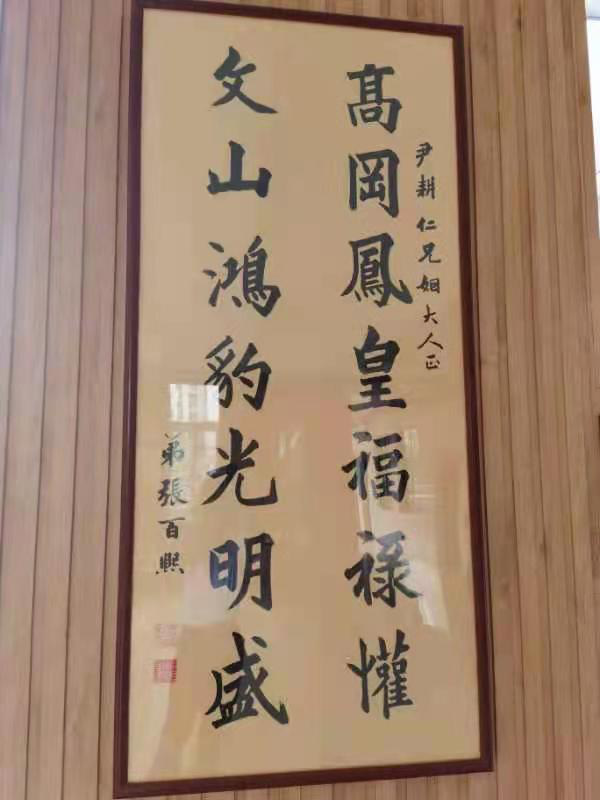 尹耕仁兄姻大人正
髙岡鳳皇福祿懽
文山鴻豹光明盛
弟張百熙